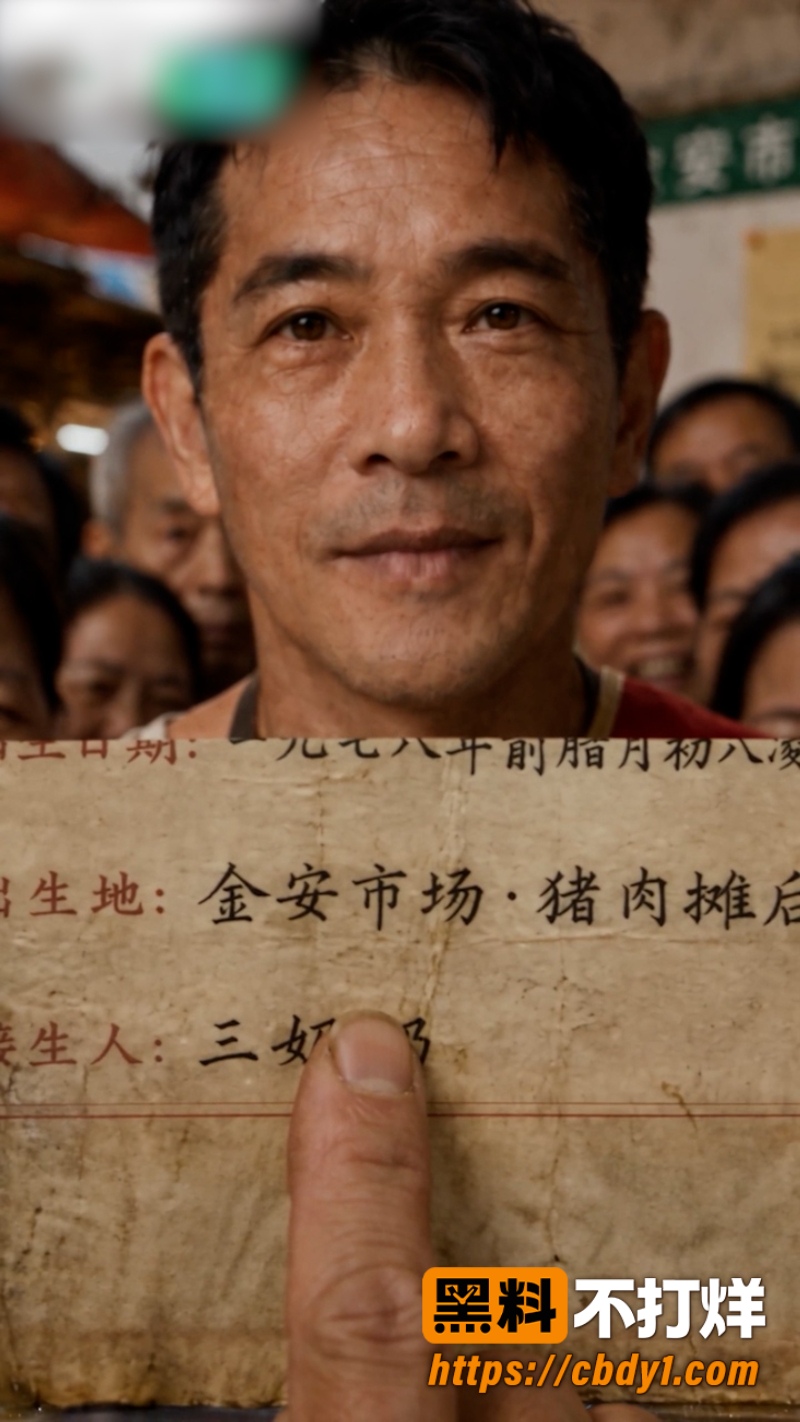 安市
生日期：一九七八年前腊月初八凌
出生地：金安市场·猪肉摊后
接生人：三奶奶
黑料不打烊
https://cbdy1.com